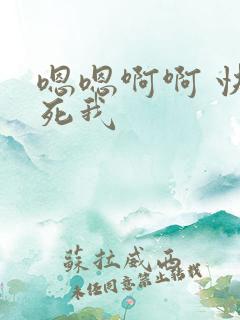 嗯嗯啊啊 快
死我
蘇拉威西
未经同意禁止转载